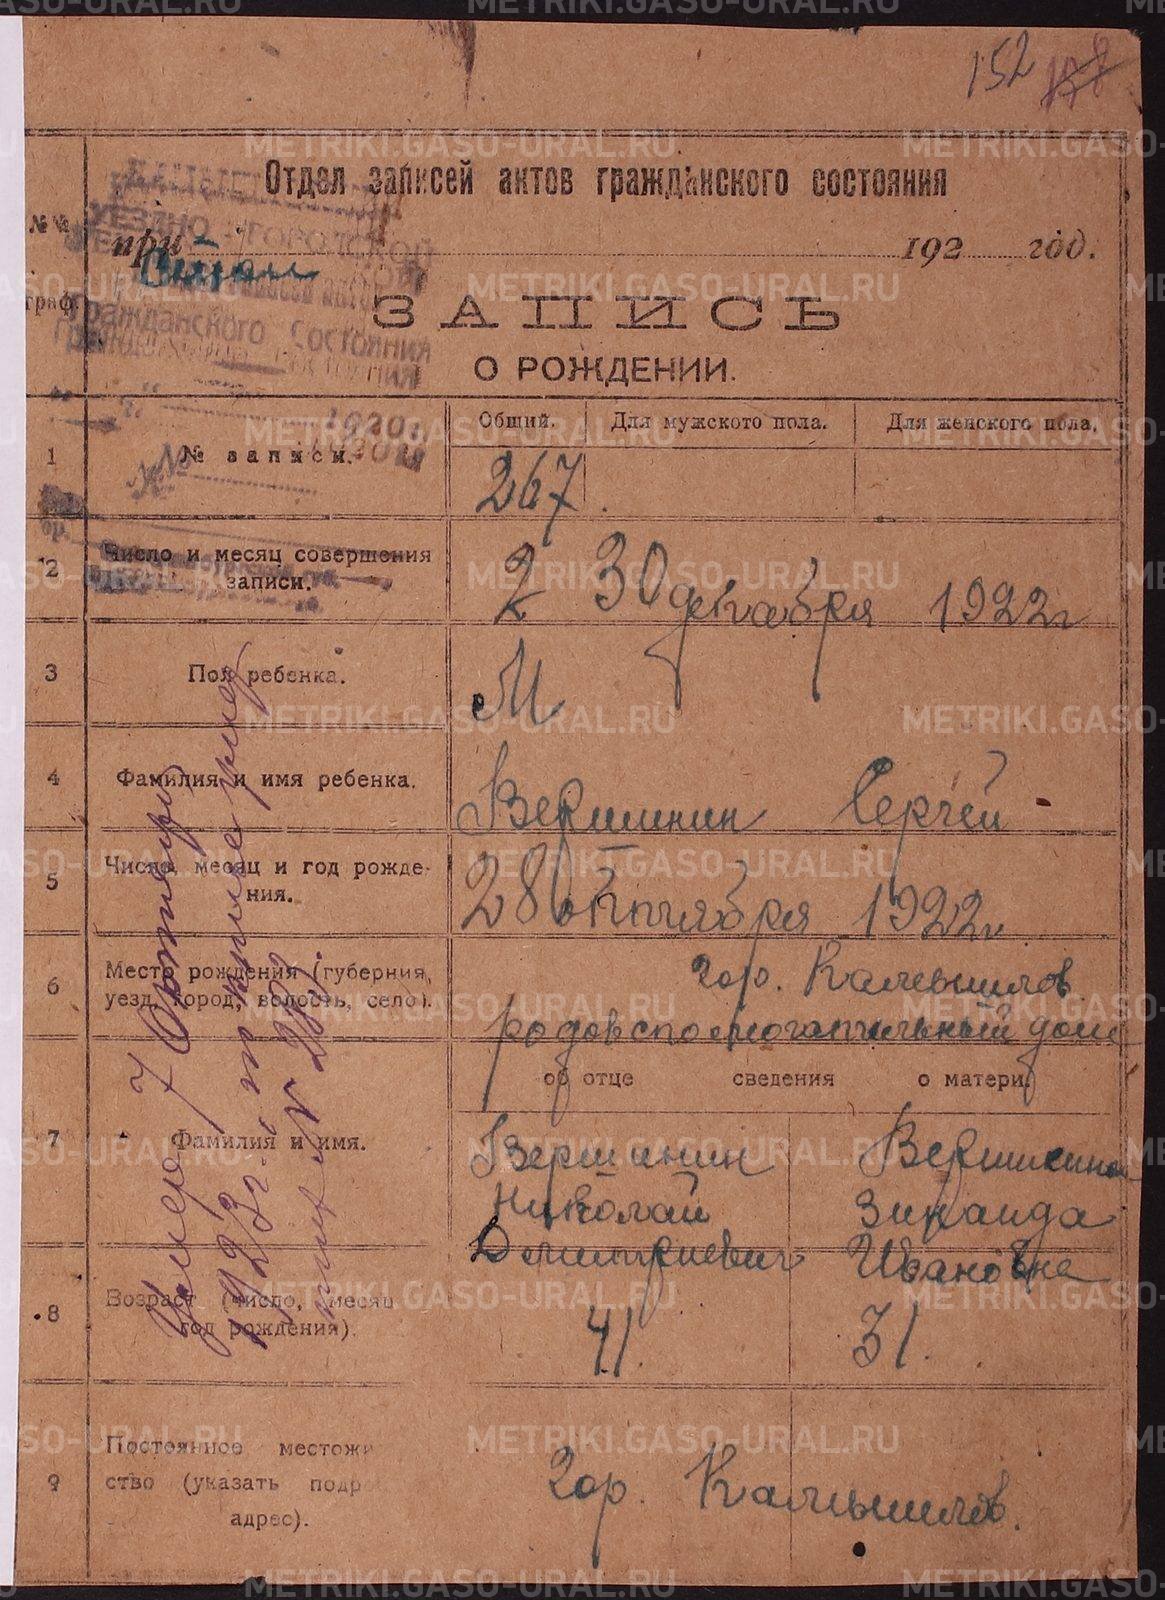 152
Отдел записей актов гражданского состояния
УЕЗДНО-ГОРОДСКОЙ
при 192 год.
№№ граф.
Гражданского состояния
ЗАПИСЬ
О РОЖДЕНИИ.
Общий. Для мужского пола. Для женского пола.
1 № записи. 267.
2 Число и месяц совершения
записи. 2 30 декабря 1922 г
3 Пол ребенка. М
4 Фамилия и имя ребенка. Вершинин Сергей
5 Число, месяц и год рожде-
ния. 28 октября 1922 г.
6 Место рождения (губерния,
уезд, город, волость, село). гор. Камышлов
родовспомогательный дом
об отце сведения о матери.
7 Фамилия и имя. Вершинин Вершинина
Николай Зинаида
Дмитриевич Ивановна
8 Возраст (число, месяц
год рождения). 41. 31.
9 Постоянное местожи
ство (указать подр
адрес). гор. Камышлов.
Умер 7
1923 г.
№ 287.
METRIKI.GASO-URAL.RU